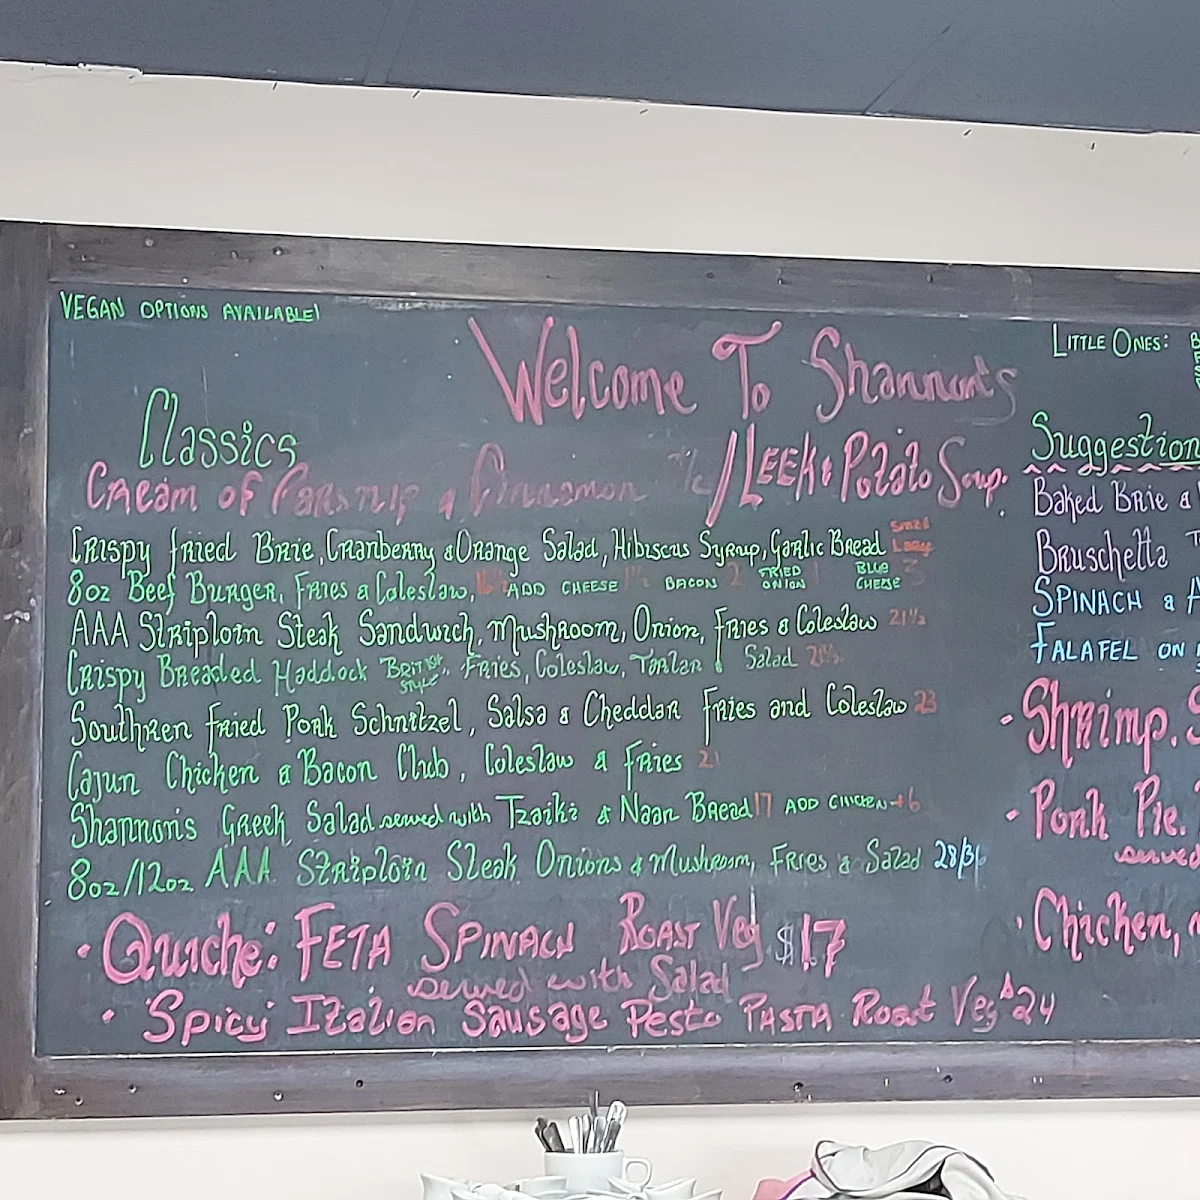 VEGAN OPTIONS AVAILABLE!
Welcome To Shannon's
Classics
Cream of Parsnip & Cinnamon / Leek & Potato Soup.
Crispy Fried Brie, Cranberry & Orange Salad, Hibiscus Syrup, Garlic Bread Small Large
8oz Beef Burger, Fries & Coleslaw, ADD CHEESE 1½ BACON 2 FRIED ONION 1 BLUE CHEESE 3
AAA Striploin Steak Sandwich, Mushroom, Onion, Fries & Coleslaw 21½
Crispy Breaded Haddock BRITISH STYLE, Fries, Coleslaw, Tartar & Salad 21½
Southren Fried Pork Schnitzel, Salsa & Cheddar Fries and Coleslaw 23
Cajun Chicken & Bacon Club, Coleslaw & Fries 21
Shannon's Greek Salad served with Tzaiki & Naan Bread 17 ADD CHICKEN +6
8oz/12oz AAA Striploin Steak Onions & Mushroom, Fries & Salad 28/36
• Quiche: FETA SPINACH ROAST Veg $17
served with Salad
• Spicy Italian Sausage Pesto PASTA Roast Veg 24
LITTLE ONES:
Suggestion
Baked Brie &
Bruschetta
SPINACH &
FALAFEL ON
• Shrimp.
• Pork Pie.
served
• Chicken,